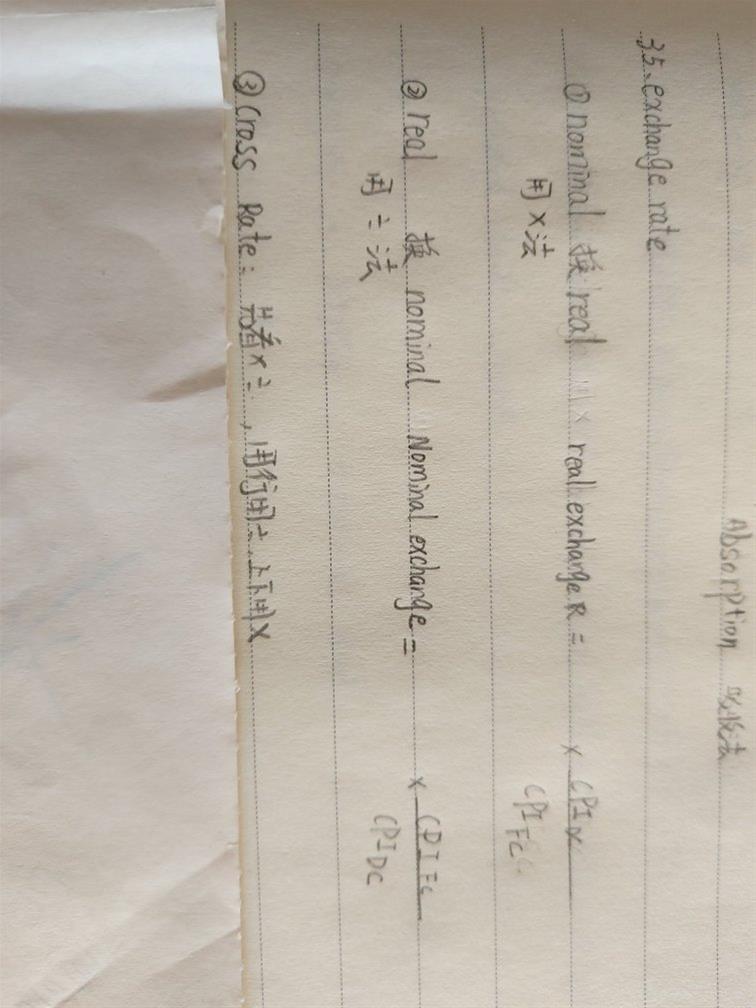 Absorption 吸收法
35. exchange rate
① nominal 换 real 用 × real exchange R = × CPI / CPI FC
用 × 法
② real 换 nominal Nominal exchange = × CPI FC / CPI DC
用 ÷ 法
③ Cross Rate: × ÷, 用 ÷, 上下用 ×